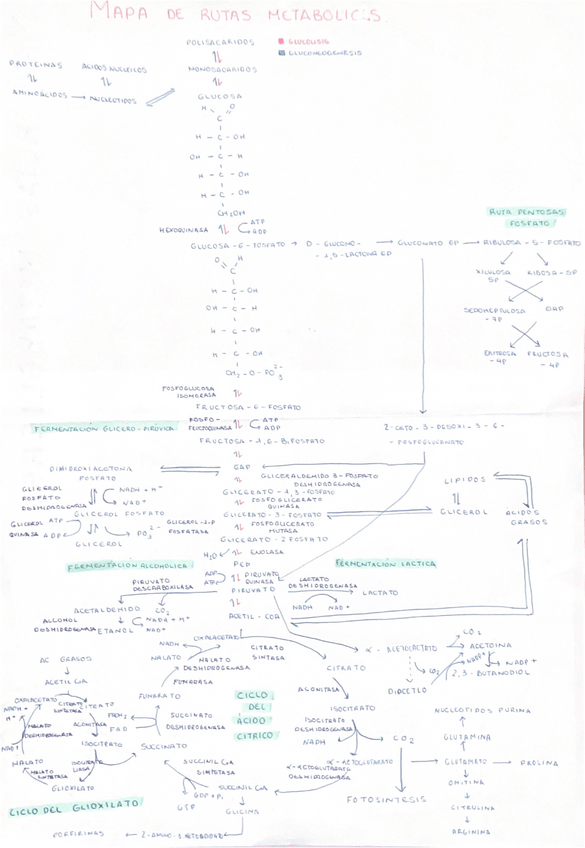 MAPA DE RUTAS METABOLICAS.
POLISACARIDOS
GLUCOLISIS
GLUCONEOGENESIS
PROTEINAS
ACIDOS NUCLEICOS
MONOSACARIDOS
AMINOACIDOS → NUCLEOTIDOS
GLUCOSA
H O
C
H - C - OH
OH - C - H
H - C - OH
H - C - OH
CH2OH
HEXOQUINASA
ATP
ADP
RUTA PENTOSAS
FOSFATO
GLUCOSA-6-FOSFATO → D-GLUCONO- → GLUCONATO 6P → RIBULOSA-5-FOSFATO
-1,5-LACTONA 6P
XILULOSA
5P
RIBOSA-5P
O H
C
H - C - OH
OH - C - H
H - C - OH
H - C - OH
CH2-O-PO3 2-
SEDOHEPTULOSA
-7P
GAP
ERITROSA
-4P
FRUCTOSA
FOSFOGLUCOSA
ISOMERASA
FRUCTOSA-6-FOSFATO
FERMENTACIÓN GLICERO-PIRÚVICA
FOSFO-
FRUCTOQUINASA
ATP
ADP
FRUCTOSA-1,6-BIFOSFATO
2-CETO-3-DESOXI-
-FOSFOGLUCONATO
DIHIDROXIACETONA
FOSFATO
GAP
GLICERALDEHIDO 3-FOSFATO
DESHIDROGENASA
GLICEROL
FOSFATO
DESHIDROGENASA
NADH + H+
NAD+
GLICERATO-1,3-FOSFATO
FOSFOGLICERATO
QUINASA
LIPIDOS
GLICEROL FOSFATO
GLICERATO-3-FOSFATO
GLICEROL
ACIDOS
GRASOS
GLICEROL
QUINASA
ATP
ADP
PO3 2-
GLICEROL-3P
FOSFATASA
FOSFOGLICERATO
MUTASA
GLICEROL
GLICERATO-2FOSFATO
H2O
ENOLASA
FERMENTACIÓN ALCOHOLICA
PEP
FERMENTACIÓN LACTICA
ADP
ATP
PIRUVATO
QUINASA
PIRUVATO
DESCARBOXILASA
PIRUVATO
LACTATO
DESHIDROGENASA
LACTATO
NADH NAD+
ACETALDEHIDO
CO2
ALCOHOL
DESHIDROGENASA
NADH + H+
NAD+
ETANOL
ACETIL-COA
OXALACETATO
NADH
MALATO
DESHIDROGENASA
CITRATO
SINTASA
MALATO
FUMARASA
FUMARATO
CITRATO
α-ACETOLACTATO
CO2
ACETOINA
CO2
NADP+
2,3-BUTANODIOL
DIACETILO
AC GRASOS
ACETIL COA
OXALACETATO
CITRATO
SINTETASA
CITRATO
NADH+
H+
MALATO
DESHIDROGENASA
NAD+
ACONITASA
FADH2
FAD
SUCCINATO
DESHIDROGENASA
CICLO
DEL
ÁCIDO
CITRICO
ACONITASA
ISOCITRATO
ISOCITRATO
DESHIDROGENASA
NADH
NUCLEOTIDOS PURINA
GLUTAMINA
CO2
MALATO
ISOCITRATO
ISOCITRATO
LIASA
MALATO
SINTETASA
GLIOXILATO
SUCCINATO
SUCCINIL COA
SINTETASA
α-CETOGLUTARATO
α-CETOGLUTARATO
DESHIDROGENASA
GLUTAMATO
PROLINA
SUCCINIL COA
GDP + Pi
GTP
FOTOSINTESIS
ORNITINA
CITRULINA
ARGININA
CICLO DEL GLIOXILATO
GLICINA
PORFIRINAS